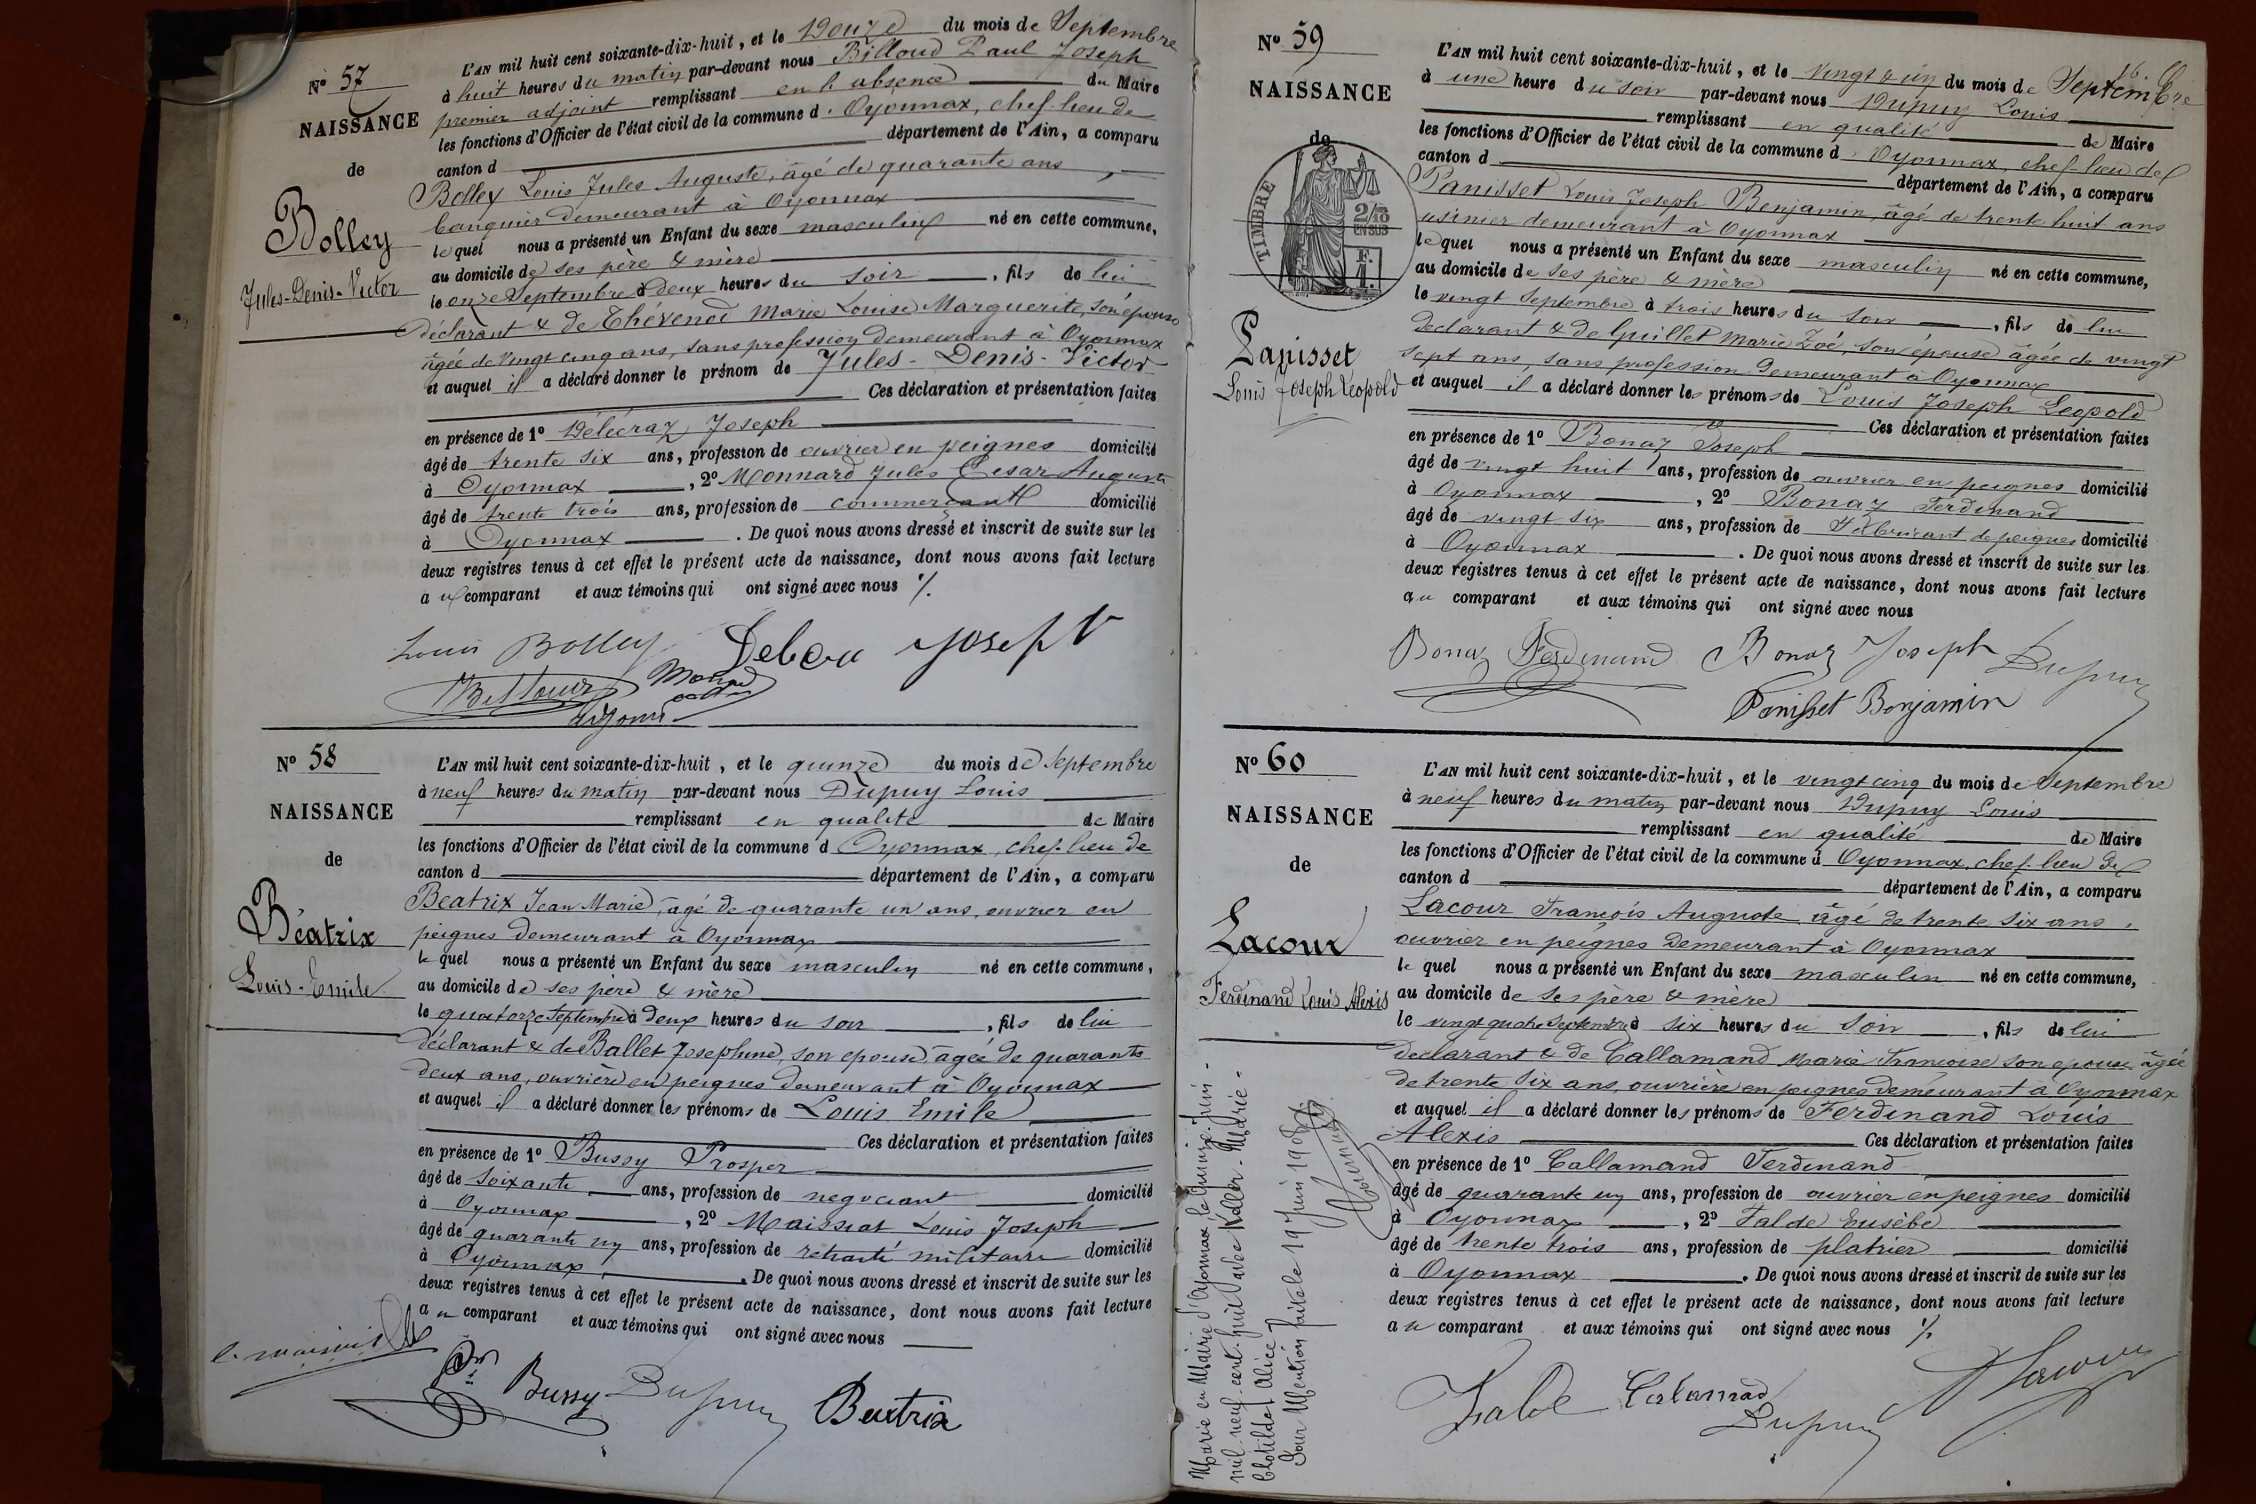 Nº 57
NAISSANCE
de
Bolley
Jules-Denis-Victor
L'AN mil huit cent soixante-dix-huit, et le Douze du mois de Septembre
à huit heures du matin par-devant nous Billoud Paul Joseph
premier adjoint remplissant en l'absence du Maire
les fonctions d'Officier de l'état civil de la commune d'Oyonnax, chef-lieu de
canton d département de l'Ain, a comparu
Bolley Louis Jules Auguste, âgé de quarante ans,
banquier demeurant à Oyonnax
lequel nous a présenté un Enfant du sexe masculin né en cette commune,
au domicile de ses père & mère
le onze Septembre à deux heures du soir, fils de lui
déclarant & de Thévenod Marie Louise Marguerite, son épouse
âgée de vingt cinq ans, sans profession demeurant à Oyonnax
et auquel il a déclaré donner le prénom de Jules-Denis-Victor
Ces déclaration et présentation faites
en présence de 1º Délécraz Joseph
âgé de trente six ans, profession de ouvrier en peignes domicilié
à Oyonnax, 2º Monnard Jules Cesar Auguste
âgé de trente trois ans, profession de commerçant domicilié
à Oyonnax. De quoi nous avons dressé et inscrit de suite sur les
deux registres tenus à cet effet le présent acte de naissance, dont nous avons fait lecture
au comparant et aux témoins qui ont signé avec nous ./.
Louis Bolley Joseph
Billoud
Nº 58
NAISSANCE
de
Béatrix
Louis-Emile
L'AN mil huit cent soixante-dix-huit, et le quinze du mois de Septembre
à neuf heures du matin par-devant nous Dupuy Louis
remplissant en qualité de Maire
les fonctions d'Officier de l'état civil de la commune d'Oyonnax, chef-lieu de
canton d département de l'Ain, a comparu
Béatrix Jean Marie, âgé de quarante un ans, ouvrier en
peignes demeurant à Oyonnax
lequel nous a présenté un Enfant du sexe masculin né en cette commune,
au domicile de ses père & mère
le quatorze Septembre à deux heures du soir, fils de lui
déclarant & de Ballet Josephine, son épouse, âgée de quarante
deux ans, ouvrière en peignes demeurant à Oyonnax
et auquel il a déclaré donner les prénoms de Louis Emile
Ces déclaration et présentation faites
en présence de 1º Bussy Prosper
âgé de soixante ans, profession de negociant domicilié
à Oyonnax, 2º Maissiat Louis Joseph
âgé de quarante un ans, profession de retraité militaire domicilié
à Oyonnax. De quoi nous avons dressé et inscrit de suite sur les
deux registres tenus à cet effet le présent acte de naissance, dont nous avons fait lecture
au comparant et aux témoins qui ont signé avec nous
Bussy Dupuy Beatrix
Nº 59
NAISSANCE
de
TIMBRE
2/10
EN SUS
F.
1.
Panisset
Louis Joseph Léopold
L'AN mil huit cent soixante-dix-huit, et le vingt & un du mois de Septembre
à une heure du soir par-devant nous Dupuy Louis
remplissant en qualité de Maire
les fonctions d'Officier de l'état civil de la commune d'Oyonnax, chef-lieu de
canton d département de l'Ain, a comparu
Panisset Louis Joseph Benjamin, âgé de trente huit ans
usinier demeurant à Oyonnax
lequel nous a présenté un Enfant du sexe masculin né en cette commune,
au domicile de ses père & mère
le vingt Septembre à trois heures du soir, fils de lui
déclarant & de Guillet Marie Zoé, son épouse âgée de vingt
sept ans, sans profession demeurant à Oyonnax
et auquel il a déclaré donner les prénoms de Louis Joseph Leopold
Ces déclaration et présentation faites
en présence de 1º Bonaz Joseph
âgé de vingt huit ans, profession de ouvrier en peignes domicilié
à Oyonnax, 2º Bonaz Ferdinand
âgé de vingt six ans, profession de Fabricant de peignes domicilié
à Oyonnax. De quoi nous avons dressé et inscrit de suite sur les
deux registres tenus à cet effet le présent acte de naissance, dont nous avons fait lecture
au comparant et aux témoins qui ont signé avec nous
Bonaz Ferdinand Bonaz Joseph Dupuy
Panisset Benjamin
Nº 60
NAISSANCE
de
Lacour
Ferdinand Louis Alexis
L'AN mil huit cent soixante-dix-huit, et le vingt cinq du mois de Septembre
à neuf heures du matin par-devant nous Dupuy Louis
remplissant en qualité de Maire
les fonctions d'Officier de l'état civil de la commune d'Oyonnax, chef-lieu de
canton d département de l'Ain, a comparu
Lacour François Auguste âgé de trente six ans,
ouvrier en peignes demeurant à Oyonnax
lequel nous a présenté un Enfant du sexe masculin né en cette commune,
au domicile de ses père & mère
le vingt quatre Septembre à six heures du soir, fils de lui
déclarant & de Callamand Marie Françoise son épouse âgée
de trente six ans, ouvrière en peignes demeurant à Oyonnax
et auquel il a déclaré donner les prénoms de Ferdinand Louis
Alexis Ces déclaration et présentation faites
en présence de 1º Callamand Ferdinand
âgé de quarante un ans, profession de ouvrier en peignes domicilié
à Oyonnax, 2º Falde Eusèbe
âgé de trente trois ans, profession de platrier domicilié
à Oyonnax. De quoi nous avons dressé et inscrit de suite sur les
deux registres tenus à cet effet le présent acte de naissance, dont nous avons fait lecture
au comparant et aux témoins qui ont signé avec nous ./.
Calamad Lacour
Dupuy
Marié en Mairie d'Oyonnax le quinze Juin
mil neuf cent huit avec Keller Marie
Clotilde Alice
Pour Mention faite le 19 Juin 1908